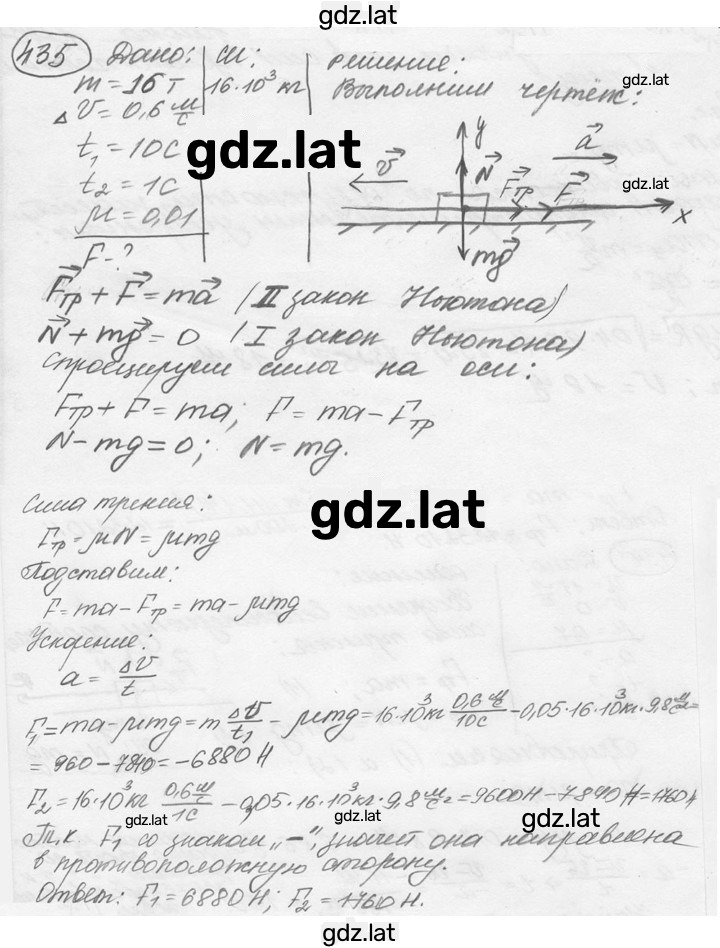 gdz.lat
435 Дано: си: Решение:
m = 16 т 16·10³ кг Выполним чертёж:
gdz.lat
Δ V = 0,6 м/с
t₁ = 10 с
t₂ = 1 с
μ = 0,01
F - ?
gdz.lat
v⃗ y N⃗ a⃗
gdz.lat
F⃗тр F⃗ x
mg⃗
F⃗тр + F⃗ = ma⃗ (II закон Ньютона)
N⃗ + mg⃗ = 0 (I закон Ньютона)
Спроецируем силы на оси:
Fтр + F = ma; F = ma - Fтр
N - mg = 0; N = mg.
Сила трения:
gdz.lat
Fтр = μN = μmg
Подставим:
F = ma - Fтр = ma - μmg
Ускорение:
a = Δv/t
F₁ = ma - μmg = m Δv/t₁ - μmg = 16·10³ кг 0,6 м/с / 10 с - 0,05·16·10³ кг·9,8 м/с² =
= 960 - 7840 = -6880 Н
F₂ = 16·10³ кг 0,6 м/с / 1 с - 0,05·16·10³ кг·9,8 м/с² = 9600 Н - 7840 Н = 1760 Н
Т.к. F₁ со знаком „-", значит она направлена
в противоположную сторону.
Ответ: F₁ = 6880 Н; F₂ = 1760 Н.
gdz.lat